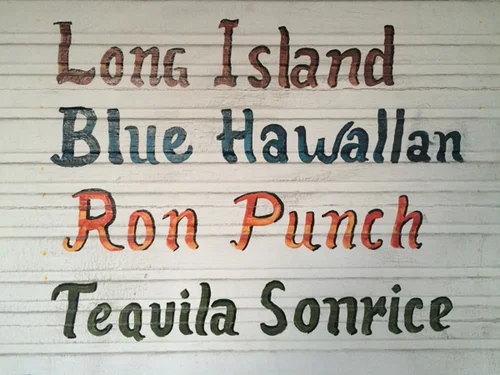 Long Island
Blue Hawallan
Ron Punch
Tequila Sonrice